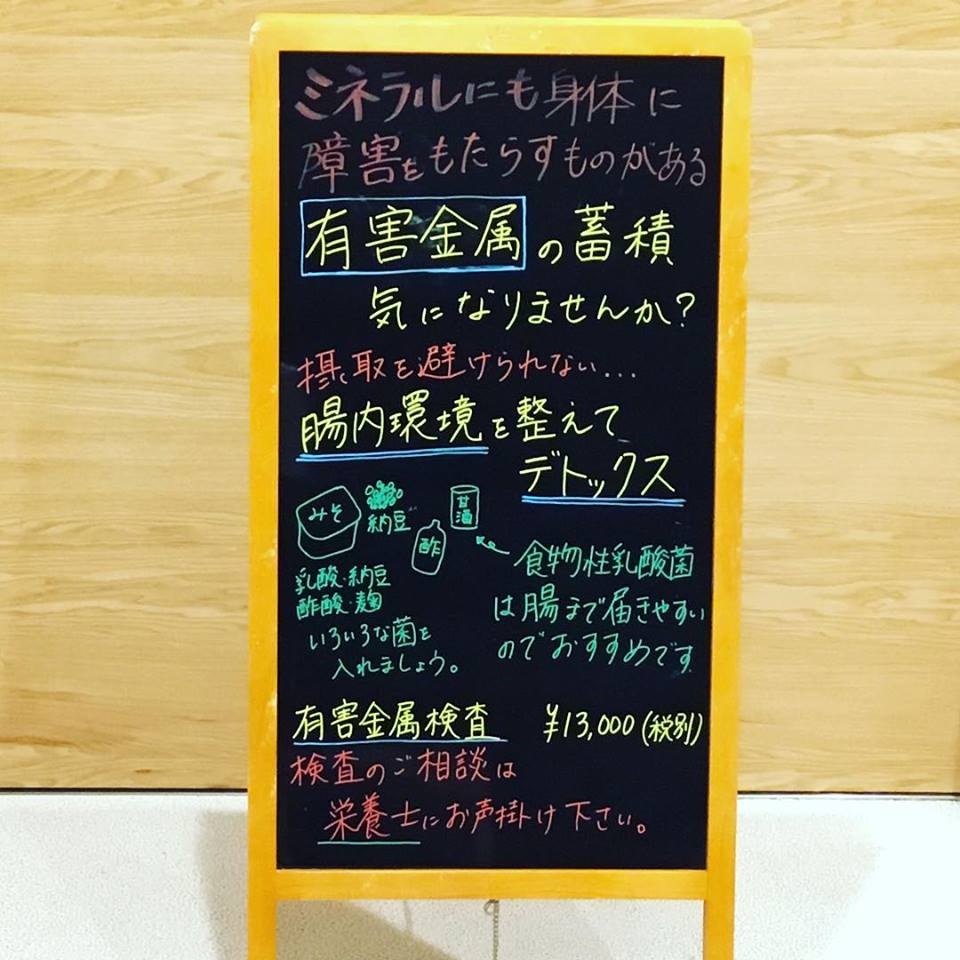 ミネラルにも身体に
障害をもたらすものがある
有害金属の蓄積
気になりませんか?
摂取を避けられない...
腸内環境を整えて
デトックス
みそ
納豆
酢
甘酒
乳酸・納豆
酢酸・麹
いろいろな菌を
入れましょう。
食物性乳酸菌
は腸まで届きやすい
のでおすすめです
有害金属検査 ¥13,000(税別)
検査のご相談は
栄養士にお声掛け下さい。